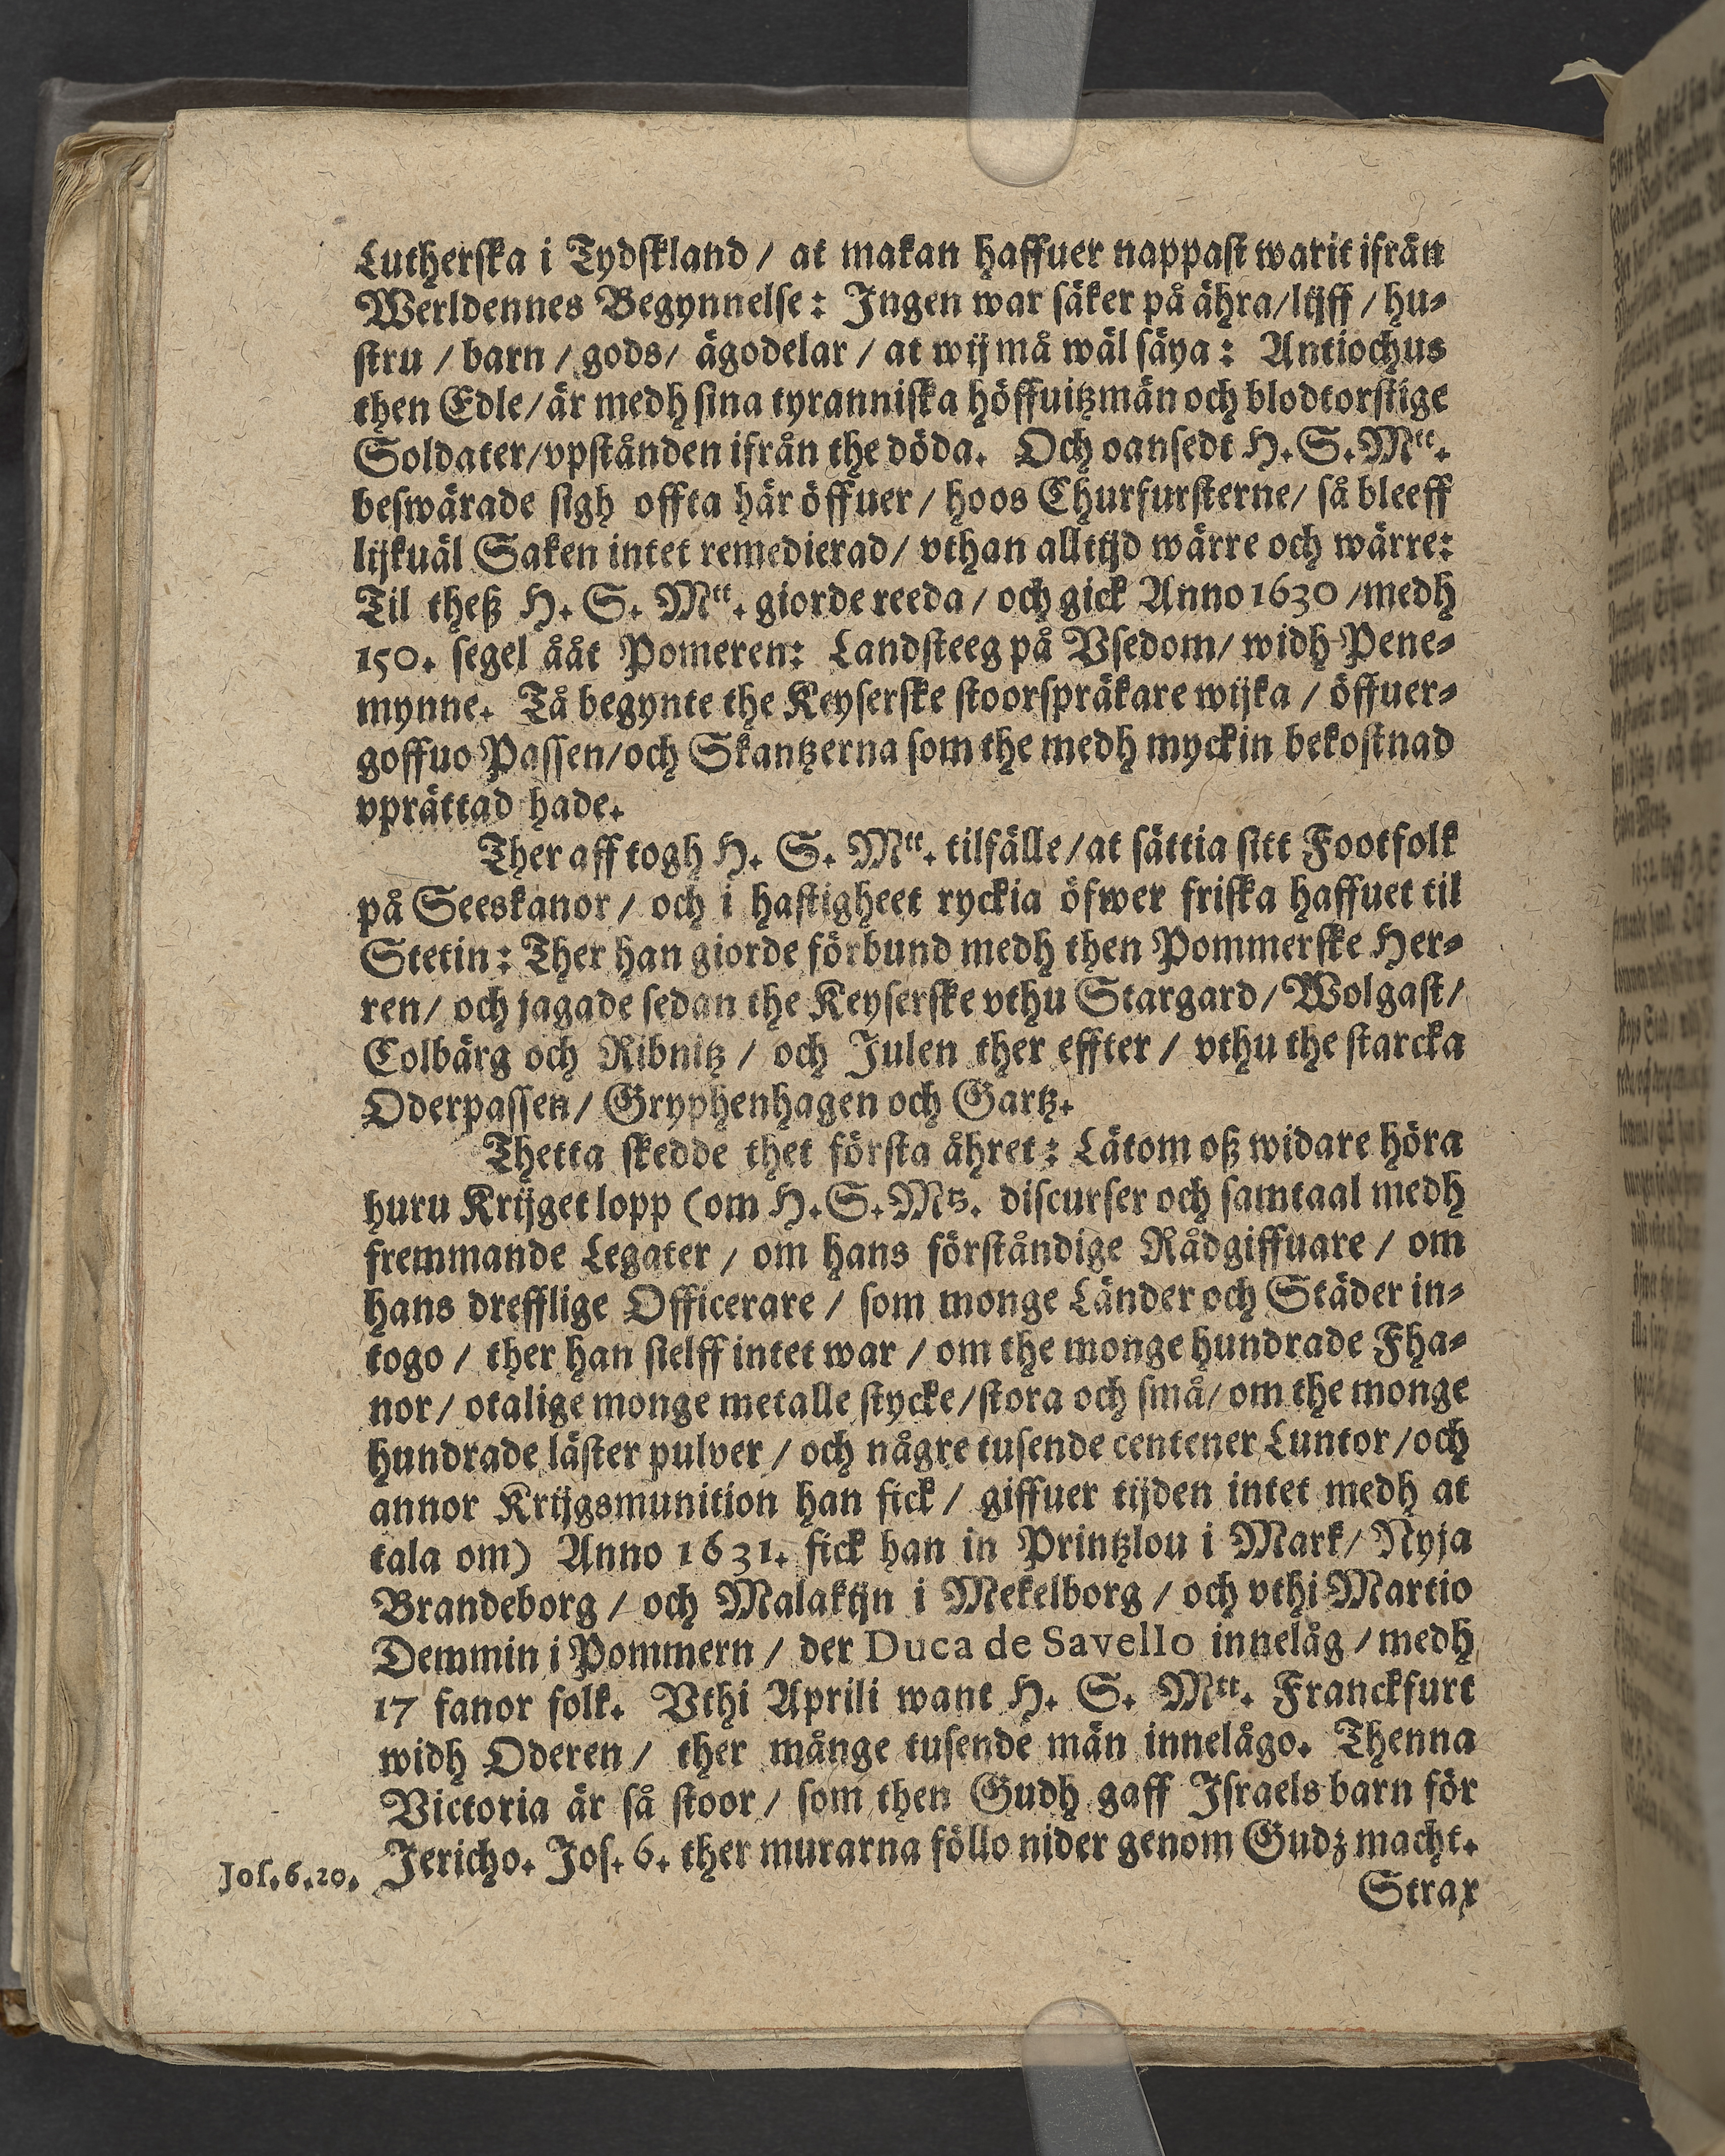 Lutherſka i Tydſkland / at makan haffuer nappaſt warit ifrån
Werldennes Begynnelſe: Ingen war ſäker på ähra/lijff / hu-
ſtru / barn / gods/ ägodelar / at wij må wäl ſäya: Antiochus
then Edle/är medh ſina tyranniſka höffuitzmän och blodtorſtige
Soldater/vpſtånden ifrån the döda. Och oanſedt H.S.Mtt.
beſwärade ſigh offta här öffuer / hoos Churfurſterne/ ſå bleeff
lijkuäl Saken intet remedierad/ vthan alltijd wärre och wärre:
Til theß H. S. Mtt. giorde reeda / och gick Anno 1630 /medh
150. ſegel ååt Pomeren: Landſteeg på Vſedom/ widh Pene-
mynne. Tå begynte the Keyſerſke ſtoorſpräkare wijka / öffuer-
goffuo Paſſen/och Skantzerna ſom the medh myckin bekoſtnad
vprättad hade.
Ther aff togh H. S. Mtt. tilfälle/at ſättia ſitt Footfolk
på Seeskanor / och i haſtigheet ryckia öfwer friſka haffuet til
Stetin: Ther han giorde förbund medh then Pommerſke Her-
ren/ och jagade ſedan the Keyſerſke vthu Stargard/ Wolgaſt/
Colbärg och Ribnitz / och Julen ther effter / vthu the ſtarcka
Oderpaſſen/ Gryphenhagen och Gartz.
Thetta ſkedde thet förſta åhret: Lätom oß widare höra
huru Krijget lopp (om H.S.Mtz. diſcurſer och ſamtaal medh
fremmande Legater / om hans förſtåndige Rådgiffuare / om
hans drefflige Officerare / ſom monge Länder och Städer in-
togo / ther han ſielff intet war / om the monge hundrade Fha-
nor/ otalige monge metalle ſtycke/ſtora och ſmå/ om the monge
hundrade läſter pulver / och någre tuſende centener Luntor /och
annor Krijgsmunition han fick / giffuer tijden intet medh at
tala om) Anno 1631. fick han in Printzlou i Mark/ Nyja
Brandeborg / och Malakijn i Mekelborg / och vthi Martio
Demmin i Pommern / der Duca de Savello innelåg /medh
17 fanor folk. Vthi Aprili want H. S. Mtt. Franckfurt
widh Oderen/ ther månge tuſende män innelågo. Thenna
Victoria är ſå ſtoor/ ſom then Gudh gaff Iſraels barn för
Jericho. Joſ. 6. ther murarna föllo nider genom Gudz macht.
Joſ.6.20.
Strax